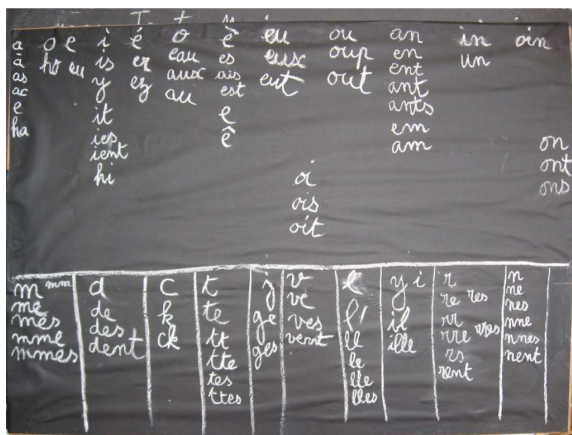 a
à
as
ac
e
ha
o
ho
e
eu
i
is
y
it
ies
ient
hi
é
er
ez
o
eau
aux
au
è
es
ais
est
e
ê
eu
eux
eut
oi
ois
oit
ou
oup
out
an
en
ent
ant
ants
em
am
in
un
oin
on
ont
ons
m mm
me
mes
mme
mmes
d
de
des
dent
c
k
ck
t
te
tt
tte
tes
ttes
j
ge
ges
v
ve
ves
vent
l
l'
ll
le
lle
lles
y i
il
ille
r
re res
rr
rre rres
rs
rent
n
ne
nes
nne
nnes
nent